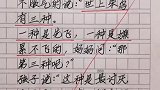 不服气的说："世上笨鸟
有三种。
一种是先飞，一种是嫌
累不飞的，好好问："那
第三种呢？"
孩子说："这种是最讨厌